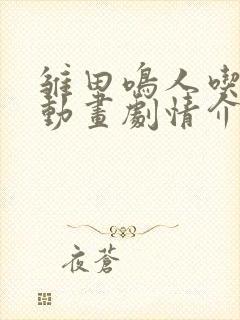 雏田鳴人喫
動畫劇情介
夜蒼